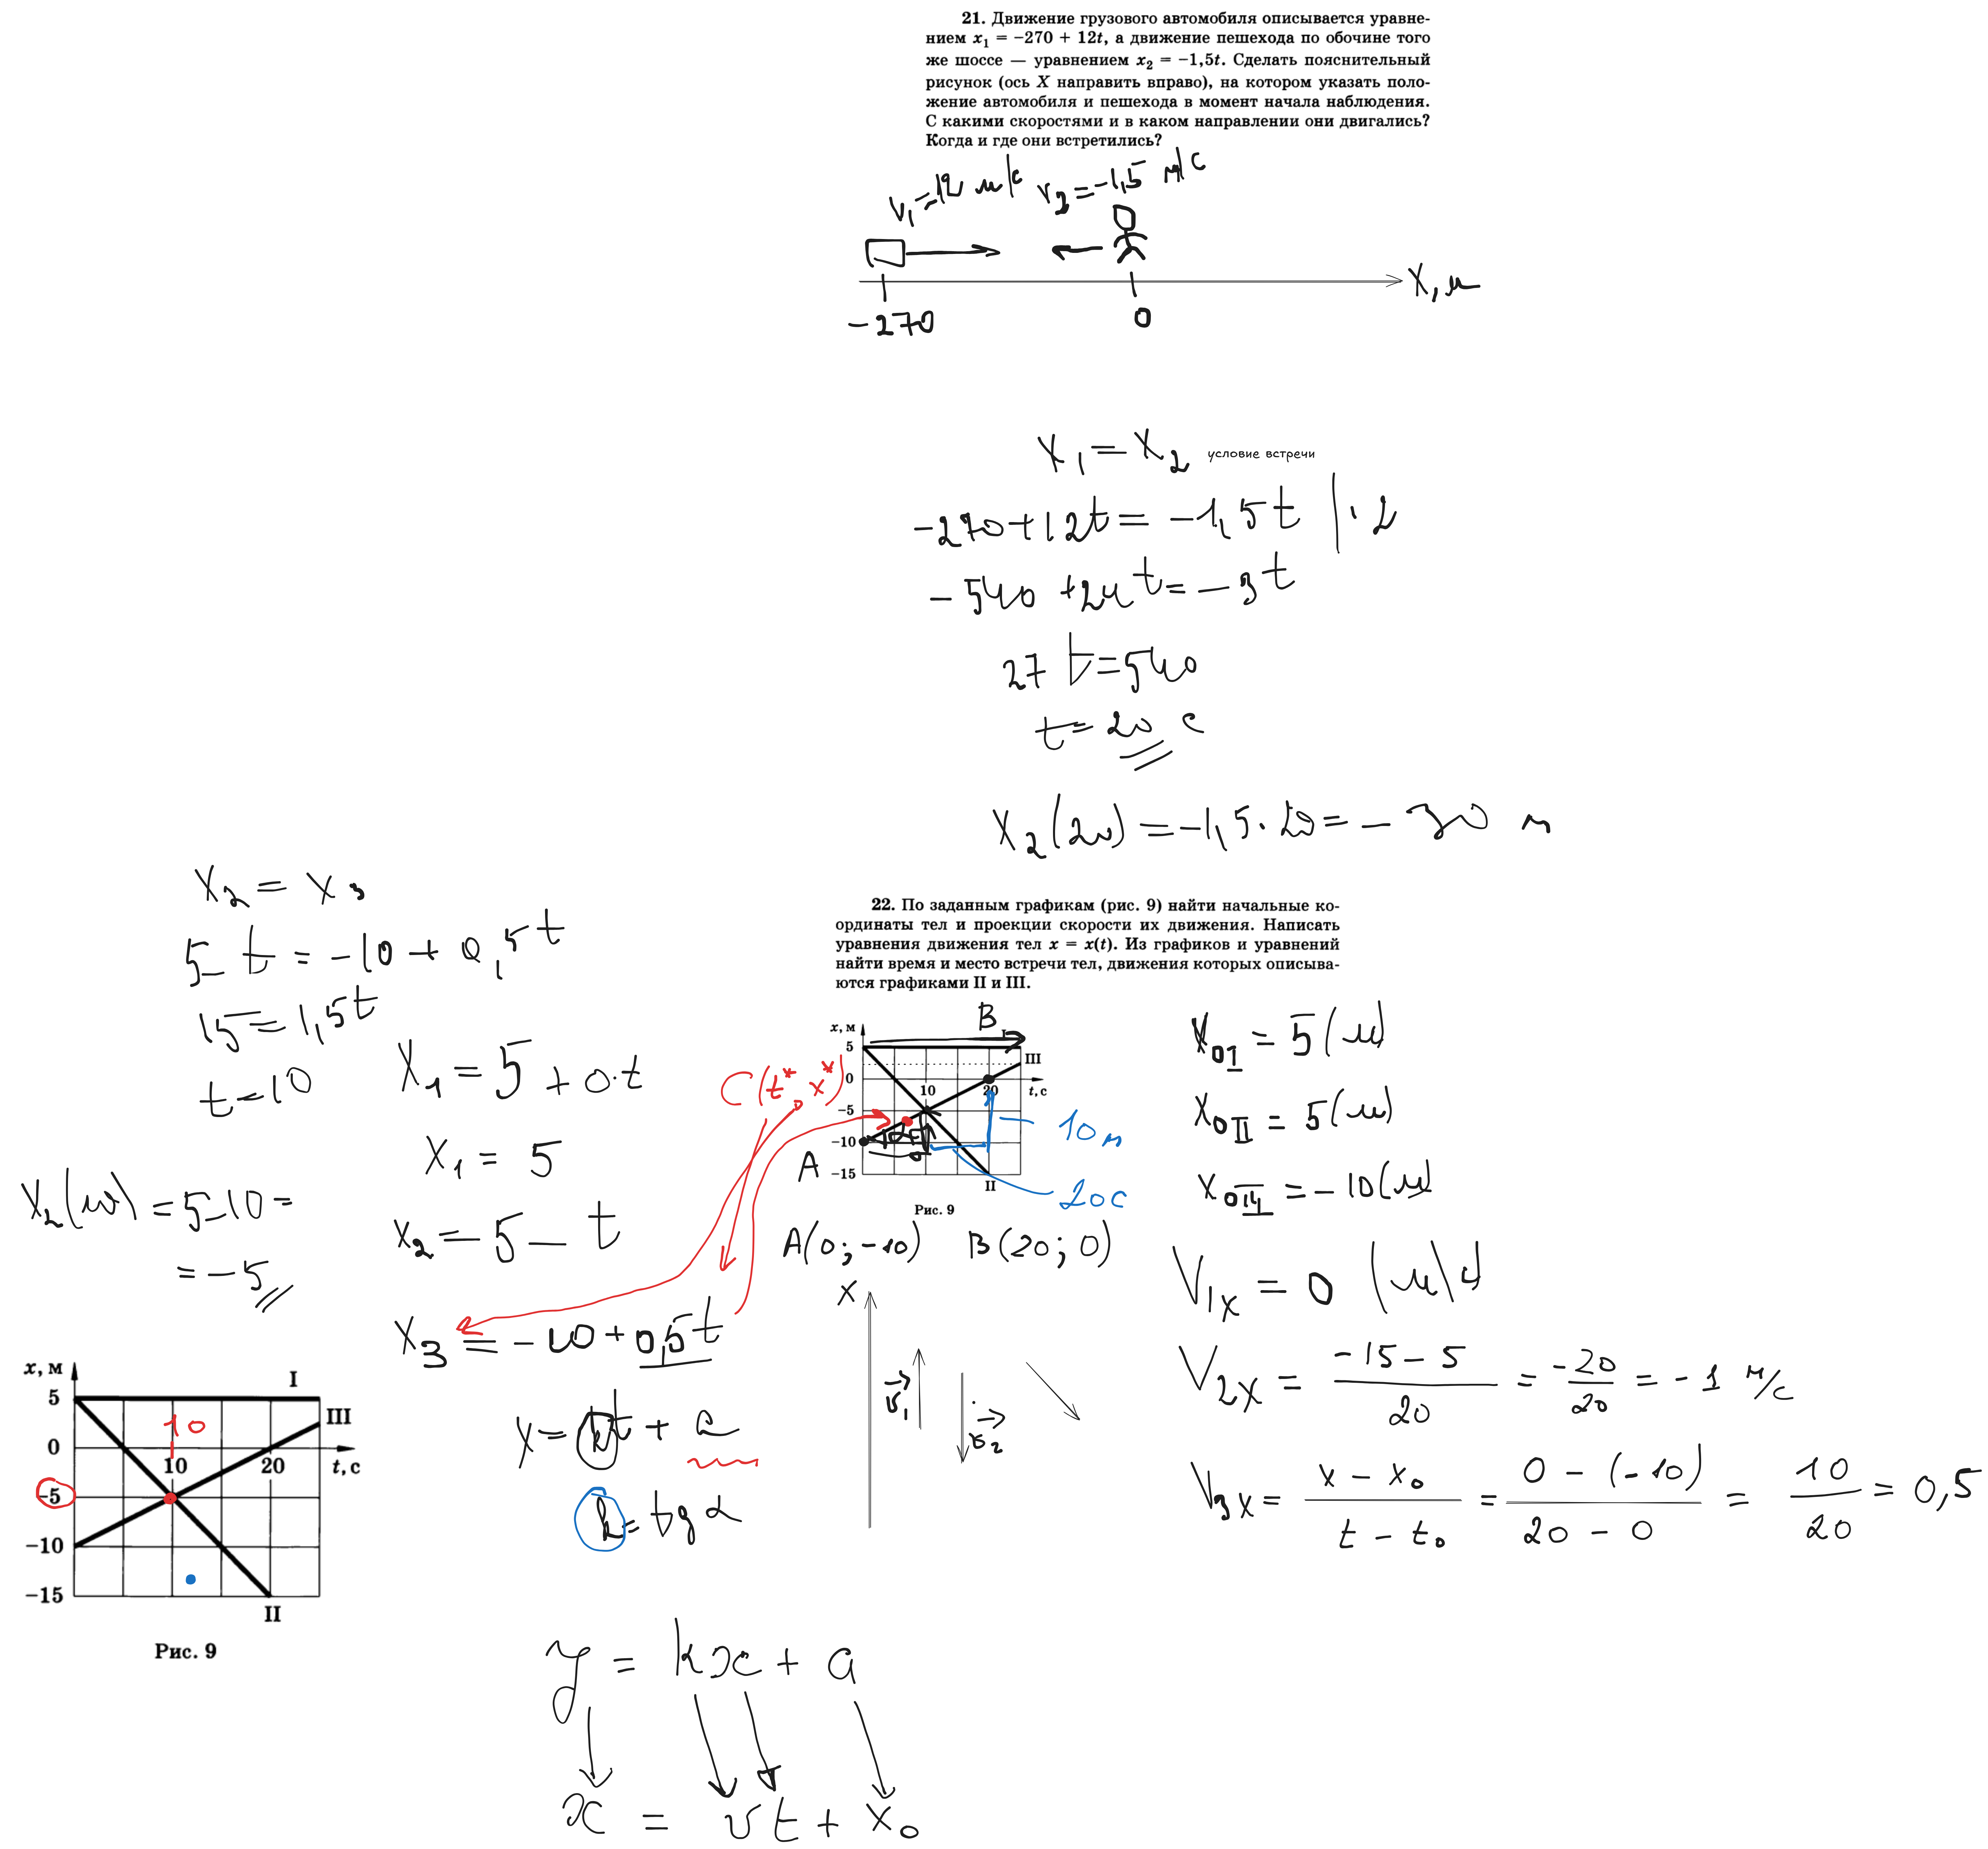 21. Движение грузового автомобиля описывается уравне-
нием x₁ = −270 + 12t, а движение пешехода по обочине того
же шоссе — уравнением x₂ = −1,5t. Сделать пояснительный
рисунок (ось X направить вправо), на котором указать поло-
жение автомобиля и пешехода в момент начала наблюдения.
С какими скоростями и в каком направлении они двигались?
Когда и где они встретились?
v₁=12 м/с v₂=-1,5 м/с
-270 0 X, м
x₁=x₂ условие встречи
-270+12t=-1,5t | ·2
-540+24t=-3t
27t=540
t=20 с
x₂(20)=-1,5·20=-30 м
22. По заданным графикам (рис. 9) найти начальные ко-
ординаты тел и проекции скорости их движения. Написать
уравнения движения тел x = x(t). Из графиков и уравнений
найти время и место встречи тел, движения которых описыва-
ются графиками II и III.
x₂=x₃
5-t=-10+0,5t
15=1,5t
t=10
x₂(10)=5-10=
=-5
x₁=5+0·t
x₁=5
x₂=5-t
x₃=-10+0,5t
C(t*, x*)
x=kt+a
k=tg α
x, м
5
0
−5
−10
−15
10
20
t, с
I
III
II
B
A
10м
20с
Рис. 9
A(0;-10) B(20;0)
X
v₁
v₂
x₀I=5(м)
x₀II=5(м)
x₀III=-10(м)
V₁x=0 (м/с)
V₂x=(-15-5)/20=-20/20=-1 м/с
V₃x=(x-x₀)/(t-t₀)=(0-(-10))/(20-0)=10/20=0,5
x, м
5
0
−5
−10
−15
10
10
20
t, с
I
III
II
Рис. 9
y=kx+a
x=vt+x₀